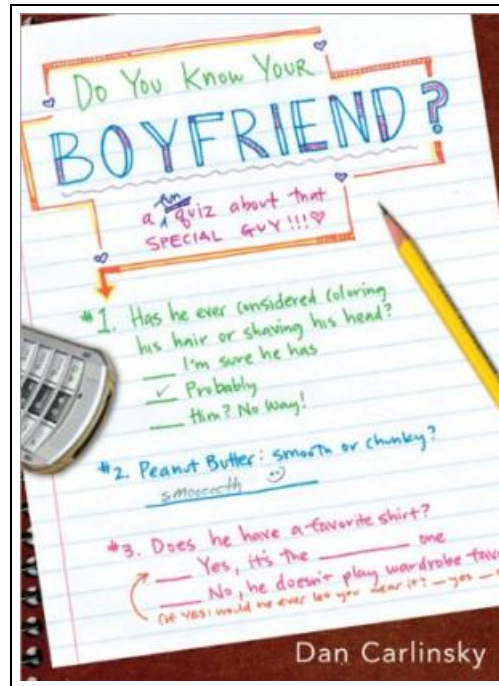 Do You Know Your
BOYFRIEND?
a fun quiz about that
SPECIAL GUY!!!
#1. Has he ever considered coloring
his hair or shaving his head?
I'm sure he has
Probably
Him? No way!
#2. Peanut Butter: smooth or chunky?
smoooooth
#3. Does he have a favorite shirt?
Yes, it's the one
No, he doesn't play wardrobe
(If YES: would he ever let you wear it? yes
Dan Carlinsky